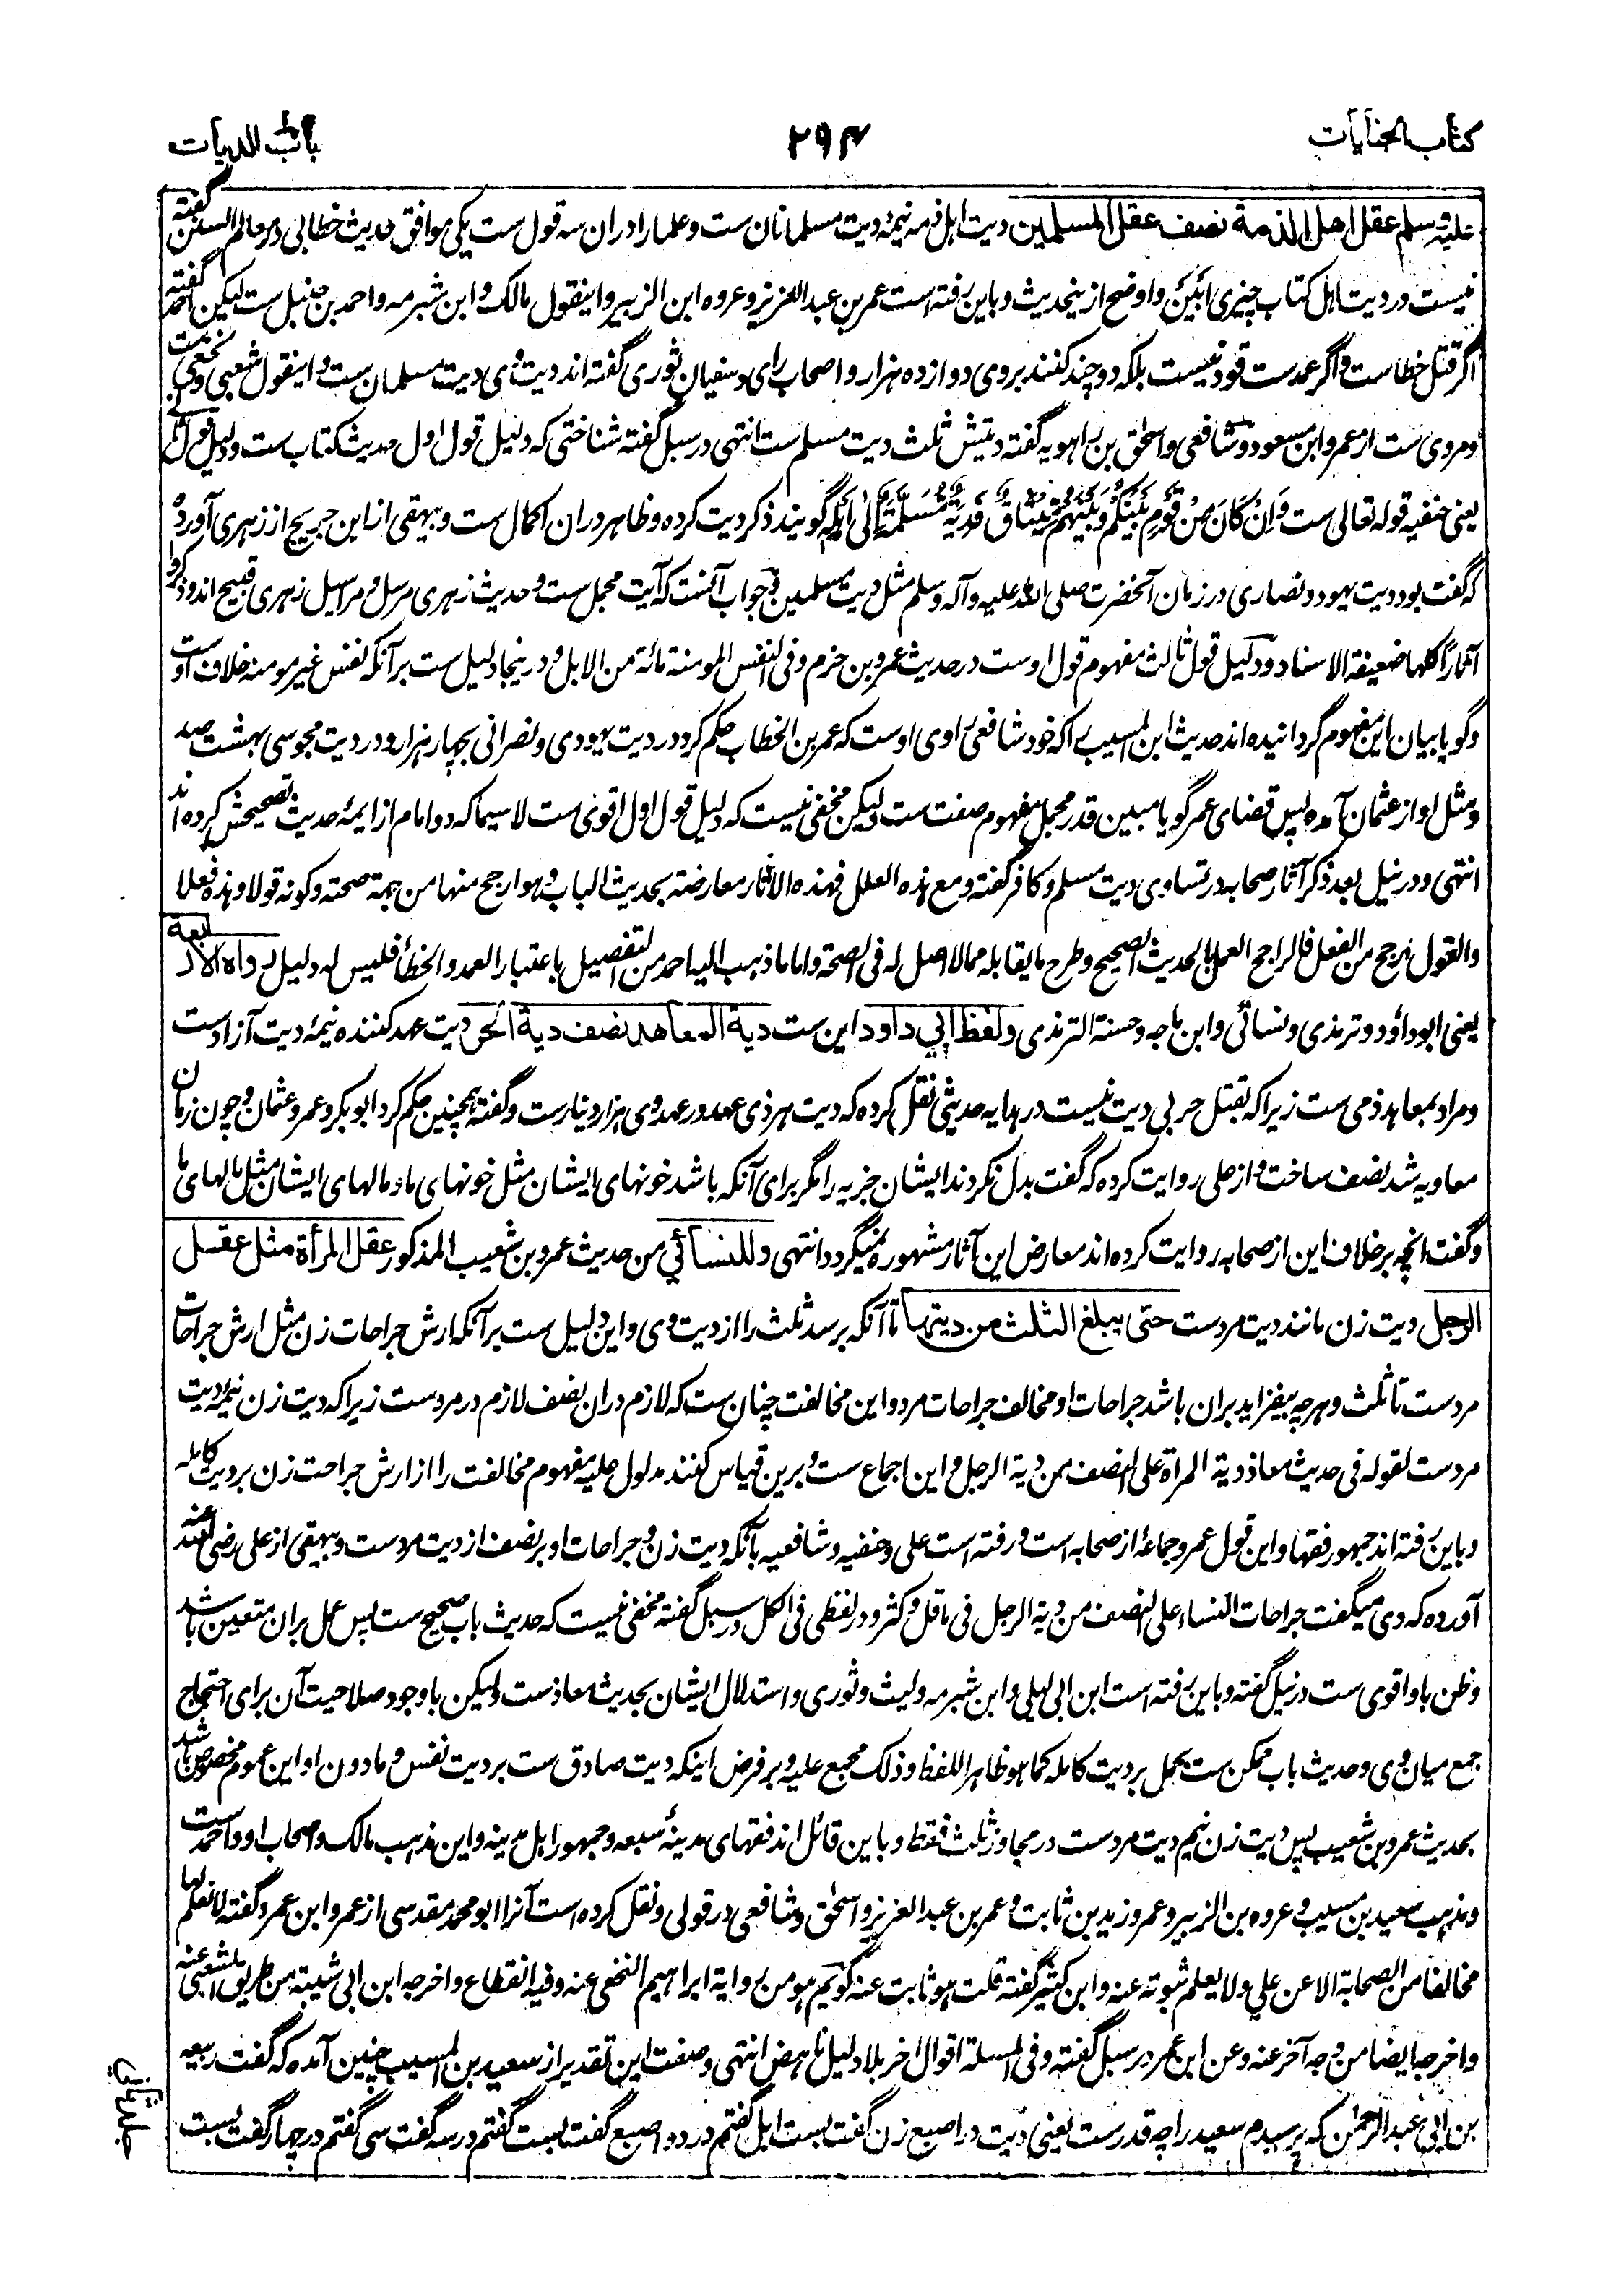 كتاب الجنايات
۲۹۴
باب الديات
عليه وسلم عقل اهل الذمة نصف عقل المسلمين ديت اهل ذمه نيمهٔ ديت مسلمانان ست وعلما را دران سه قول ست يكى موافق حديث خطابى در معالم السنن گفته
نيست در ديت اهل كتاب چيزى ابين واوضح ازينحديث وباين رفته است عمر بن عبد العزيز وعروه ابن الزبير واينقول مالك وابن شبرمه واحمد بن حنبل ست ليكن احمد گفته
اگر قتل خطاست واگر عمدست قود نيست بلكه دوچند كنند بروى دوازده هزار واصحاب راى وسفيان ثورى گفته اند ديت وى ديت مسلمان ست واينقول شعبى ونخعى ست
ومروى ست از عمر وابن مسعود وشافعى واسحٰق بن راهويه گفته ديتش ثلث ديت مسلم ست انتهى در سبل گفته شناختى كه دليل قول اول حديث كتاب ست ودليل قول ديگر
يعنى حنفيه قوله تعالى ست وَاِنْ كَانَ مِنْ قَوْمٍ بَيْنَكُمْ وَبَيْنَهُمْ مِّيْثَاقٌ فَدِيَةٌ مُّسَلَّمَةٌ اِلٰى اَهْلِهٖ گويند ذكر ديت كرده وظاهر دران اكمال ست وبيهقى از ابن جريج از زهرى آورده
كه گفت بود ديت يهود ونصارى در زمان آنحضرت صلى الله عليه وآله وسلم مثل ديت مسلمين وجواب آنست كه آيت مجمل ست وحديث زهرى مرسل ومراسيل زهرى قبيح اند وذكروا
آثارًا كلها ضعيفة الاسناد ودليل قول ثالث مفهوم قول اوست در حديث عمرو بن حزم وفى النفس المومنة مائة من الابل ودرينجا دليل ست بر آنكه نفس غير مومنه خلاف اوست
وگويا بيان اين مفهوم گردانيده اند حديث ابن المسيب را كه خود شافعى راوى اوست كه عمر بن الخطاب حكم كرد در ديت يهودى ونصرانى بچهار هزار ودر ديت مجوسى بهشت صد
ومثل او از عثمان آمده پس قضاى عمر گويا مبين قدر مجمل مفهوم صفت ست وليكن مخفى نيست كه دليل قول اول اقوى ست لاسيما كه دو امام از ايمهٔ حديث تصحيحش كرده اند
انتهى ودر نيل بعد ذكر آثار صحابه در تساوى ديت مسلم وكافر گفته ومع هذه العلل فهذه الآثار معارضة بحديث الباب وهو ارجح منها من جهة صحته وكونه قولا وهذه فعلا
والقول ارجح من الفعل فالراجح العمل بالحديث الصحيح وطرح ما يقابله مما لا اصل له فى الصحة واما ما ذهب اليه احمد من التفصيل باعتبار العمد والخطأ فليس له دليل رواه الاربعة
يعنى ابو داؤد وترمذى ونسائى وابن ماجه وحسنه الترمذى ولفظ ابي داود اين ست دية المعاهد نصف دية الحر ديت عهد كننده نيمهٔ ديت آزادست
ومراد بمعاهد ذمى ست زيرا كه بقتل حربى ديت نيست در هدايه حديثى نقل كرده كه ديت هر ذى عهد در عهد وى هزار دينارست وگفته همچنين حكم كرد ابو بكر وعمر وعثمان وچون زمان
معاويه شد نصف ساخت واز على روايت كرده كه گفت بدل نكردند ايشان جزيه را مگر براى آنكه باشد خونهاى ايشان مثل خونهاى ما ومالهاى ايشان مثل مالهاى ما
وگفت انچه بر خلاف اين از صحابه روايت كرده اند معارض اين آثار مشهوره نميگردد انتهى وللنسائي من حديث عمرو بن شعيب المذكور عقل المرأة مثل عقل
الرجل ديت زن مانند ديت مردست حتى يبلغ الثلث من ديتها تا آنكه برسد ثلث را از ديت وى واين دليل ست بر آنكه ارش جراحات زن مثل ارش جراحات
مردست تا ثلث وهرچه بيفزايد بران باشد جراحات او مخالف جراحات مرد واين مخالفت چنان ست كه لازم دران نصف لازم در مردست زيرا كه ديت زن نيمهٔ ديت
مردست لقوله فى حديث معاذ دية المراة على النصف من دية الرجل واين اجماع ست وبرين قياس كنند مدلول عليه مفهوم مخالفت را از ارش جراحت زن بر ديت كامله
وباين رفته اند جمهور فقها واين قول عمر وجماعهٔ از صحابه است ورفته است على وحنفيه وشافعيه بآنكه ديت زن وجراحات او بر نصف از ديت مردست وبيهقى از على رضى الله عنه
آورده كه وى ميگفت جراحات النساء على النصف من دية الرجل فى ما قل وكثر ودر لفظى فى الكل ودر سبل گفته مخفى نيست كه حديث باب صحيح ست پس عمل بران متعين باشد
وظن باو اقوى ست در نيل گفته وباين رفته است ابن ابى ليلى وابن شبرمه وليث وثورى واستدلال ايشان بحديث معاذست وليكن با وجود صلاحيت آن براى احتجاج
جمع ميان وى وحديث باب ممكن ست بحمل بر ديت كامله كما هو ظاهر اللفظ وذلك مجمع عليه وبر فرض اينكه ديت صادق ست بر ديت نفس وما دون او اين عموم مخصوص باشد
بحديث عمرو بن شعيب پس ديت زن نيم ديت مردست در مجاوز ثلث فقط وباين قائل اند فقهاى مدينهٔ سبعه وجمهور اهل مدينه واين مذهب مالك واصحاب او واحمدست
ومذهب سعيد بن مسيب وعروه بن الزبير وعمر وزيد بن ثابت وعمر بن عبد العزيز واسحٰق وشافعى در قولى ونقل كرده است آنرا ابو محمد مقدسى از عمر وابن عمر وگفته لا نعلم لها
مخالفا من الصحابة الا عن علي ولا يعلم ثبوته عنه وابن كثير گفته قلت هو ثابت عنه گويم هو من رواية ابراهيم النخعى عنه وفيه انقطاع واخرجه ابن ابى شيبة من طريق الشعبى عنه
واخرجه ايضا من وجه آخر عنه وعن ابن عمر در سبل گفته وفى المسئلة اقوال اخر بلا دليل ناهض انتهى وصفت اين تقدير از سعيد بن المسيب چنين آمده كه گفت ربيعه
بن ابى عبد الرحمٰن كه پرسيدم سعيد را چه قدر ست يعنى ديت در اصبع زن گفت بست ابل گفتم در دو اصبع گفت بست گفتم در سه گفت سى گفتم در چهار گفت بست
جلد ثانى